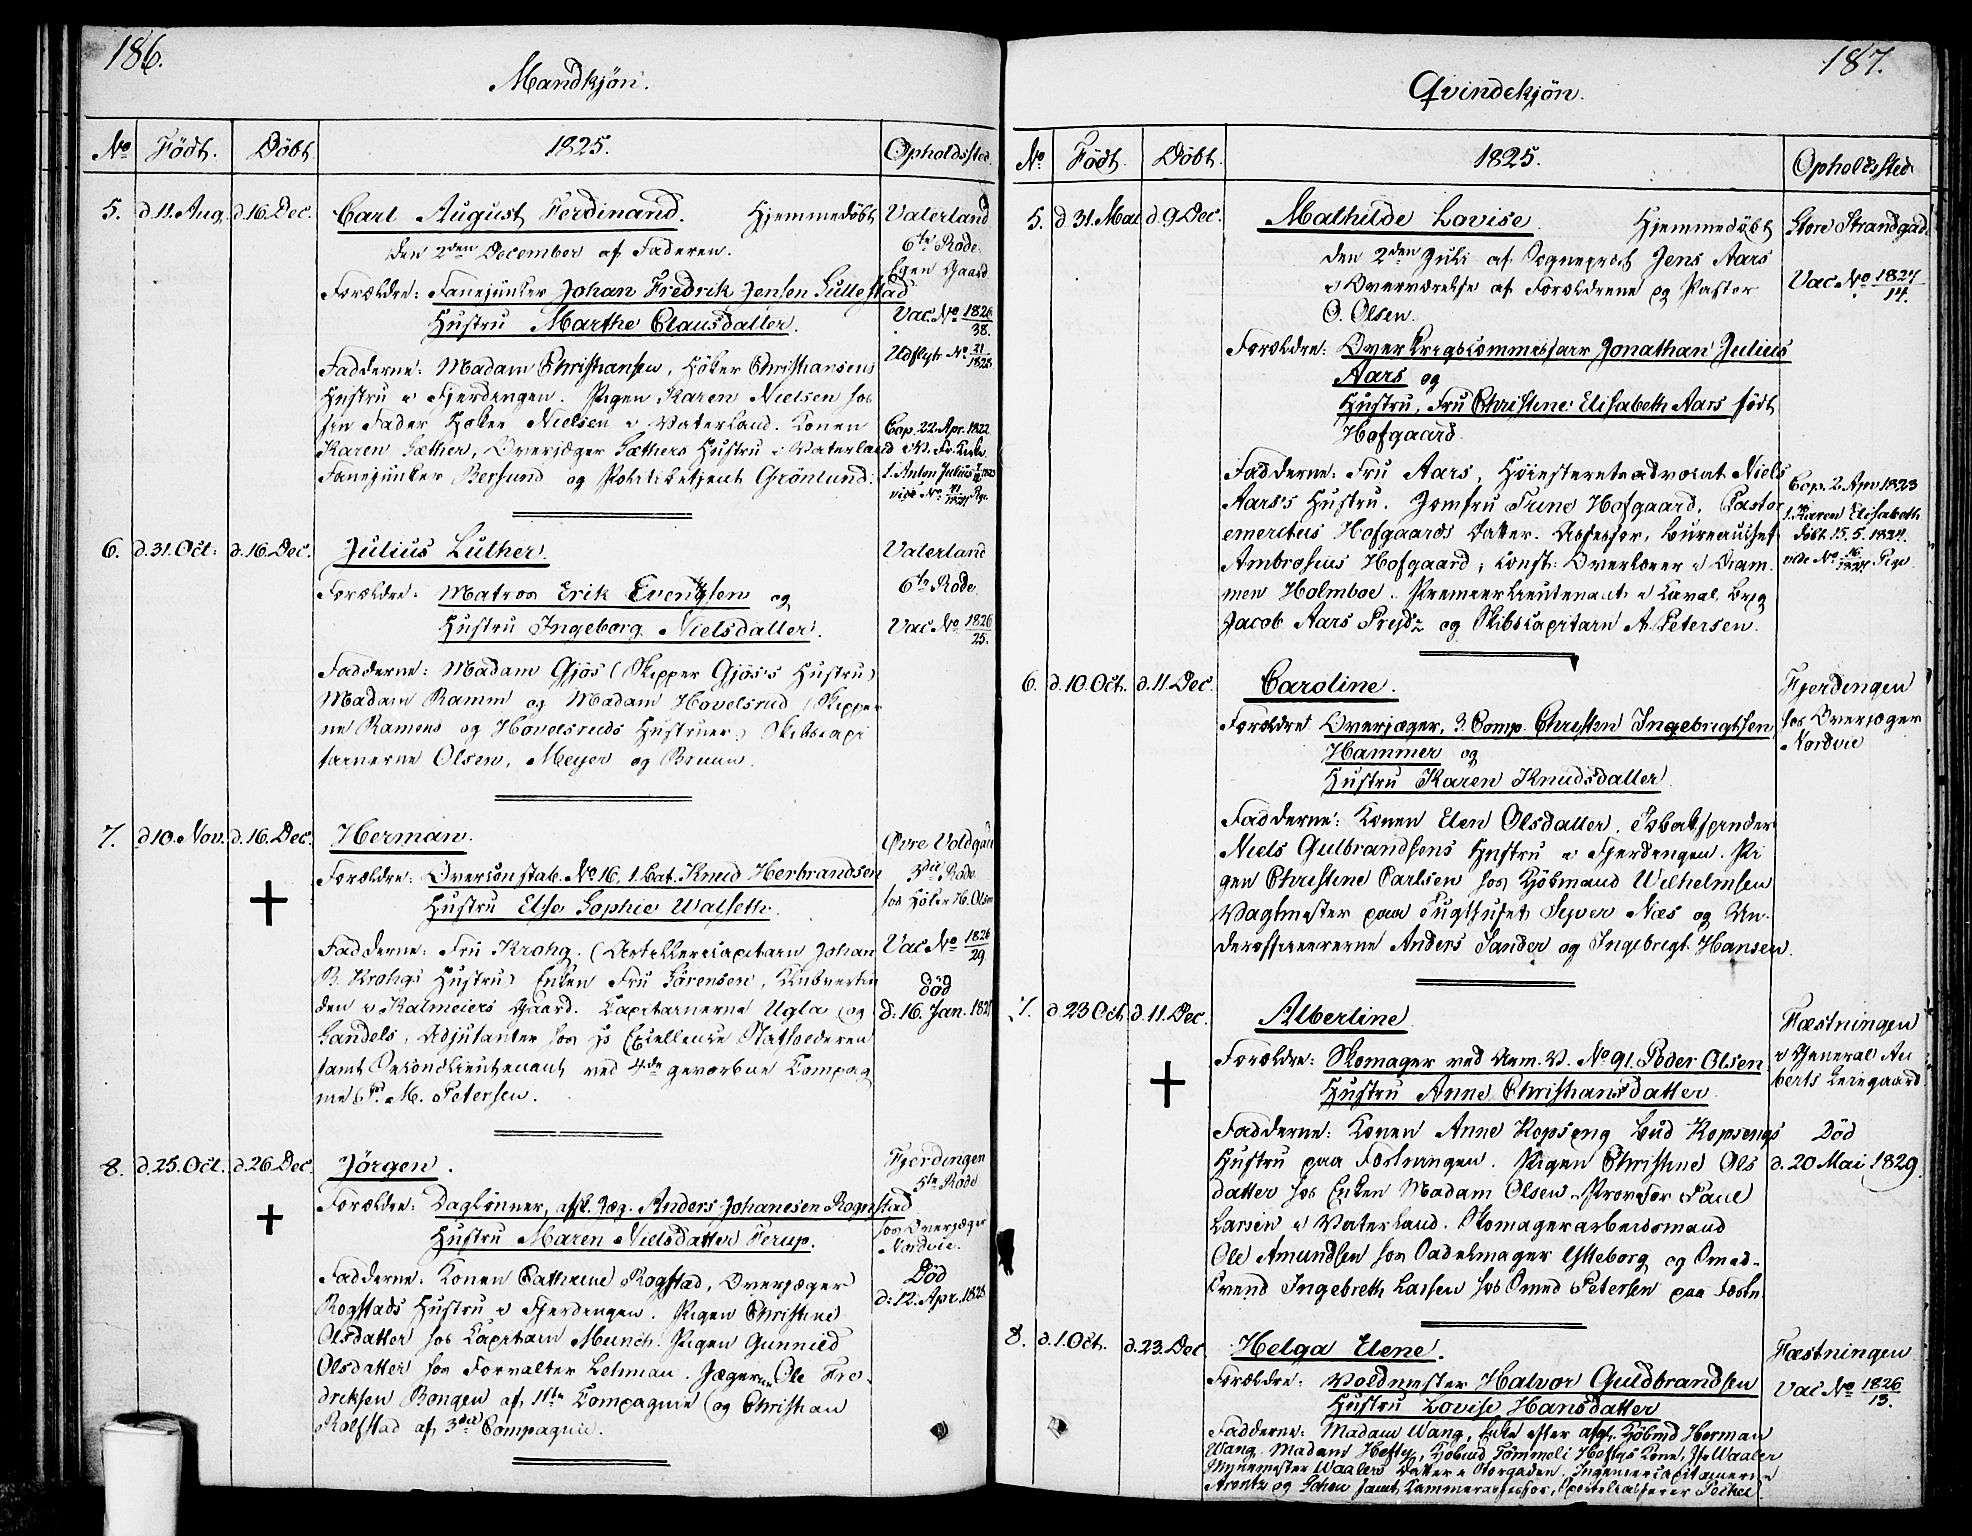 186.
Mandkjön.
No Födt. Döbt 1825. Opholdssted.
5. d 11. Aug. d. 16. Dec. Carl August Ferdinand. Hjemmedöbt
den 2den December af Faderen.
Forældre: Fanejunker Johan Fredrik Jensen Gullestad
Hustru Marthe Clausdatter.
Fadderne: Madam Christiansen, Höker Christiansens
Hustru i Fjerdingen. Pigen Karen Nielsen hos
sin Fader Höker Nielsen i Vaterland. Konen
Karen Sæther, Overjæger Sæthers Hustru i Vaterland
Fanejunker Bersund og Politibetjent Grönlund.
Vaterland
6te Rode.
Egen Gaard
Vac. No 1826/38.
Udflytt. No 21/1828
Cop. 22. Apr. 1822
1. Anton Julius
6. d. 31. Oct: d. 16. Dec. Julius Luther.
Forældre: Matros Erik Eventsen og
Hustru Ingeborg Nielsdatter.
Fadderne: Madam Gjös (Skipper Gjös's Hustru)
Madam Ramm og Madam Hövelsrud (Skipper
ne Ramms og Hövelsruds Hustruer) Skibscapi
tainerne Olsen, Meyer og Bruun.
Vaterland
6te Rode.
Vac No 1826/25.
7. d 10. Nov. d. 16. Dec. Herman.
Forældre: Overconstab. No 16, 1. Bat. Knud Herbrandsen
Hustru Else Sophie Walseth.
Fadderne: Fru Krohg. (Artilleriecapitain Johan
B. Krohgs Hustru) Enken Fru Sörensen, Klubvertin
den i Ratmeiers Gaard. Capitainerne Ugla og
Sandels, Adjutanter hos Hs Excellence Statholderen
samt Secondlieutenant ved 4de gevorbne Compag
nie P. M. Petersen.
Övre Voldgade
3die Rode
hos Höker H. Olsen
Vac No 1826/29
död
d: 16. Jan. 182
8. d. 25. Oct. d. 26. Dec. Jörgen.
Forældre: Daglönner, afsk. Jæg. Anders Johanesen Rognstad
Hustru Maren Nielsdatter Terup.
Fadderne: Konen Cathrine Rogstad, Overjæger
Rogstads Hustru i Fjerdingen. Pigen Christine
Olsdatter hos Capitain Munch. Pigen Gunnild
Olsdatter hos Forvalter Lehman. Jægerne Ole Fre-
driksen Bongen af 1ste Compagnie og Christian
Rolfstad af 3die Compagnie.
Fjerdingen
5te Rode
hos Overjæger
Nordvie.
Död
d: 12. Apr. 1828
187.
Qvindekjön.
No. Födt. Döbt. 1825. Opholdssted.
5. d 31. Mai d. 9 Dec. Mathilde Lovise. Hjemmedöbt
den 2den Juli af Sogneprest Jens Aars
i Overværelse af Forældrene og Pastor
O. Olsen.
Forældre: Overkrigscommissair Jonathan Julius
Aars og
Hustru, Fru Christine Elisabeth Aars födt
Hofgaard.
Fadderne: Fru Aars, Höiesteretsadvocat Niels
Aars's Hustru. Jomfru Trine Hofgaard, Pastor
emeritus Hofgaards Datter. Assessor, Bureauchef
Ambrosius Hofgaard; const. Overlærer i Dram.
men Holmboe. Premierlieutenant i Caval. Brig
Jacob Aars Preydz og Skibscapitain A. Petersen.
Store Strandgad.
Vac No 1827/14.
Cop. 2. Apr. 1823
1. Karen Elisabeth
födt 15. 5. 1824.
vide No 16/1824 Pige
6. d. 10. Oct. d. 11. Dec. Caroline.
Forældre Overjæger, 3. Comp. Christen Ingebrigtsen
Hammer og
Hustru Karen Knudsdatter.
Fadderne: Konen Elen Olsdatter,
Niels Gulbrandsens Hustru i Fjerdingen. Pi
gen Christine Carlsen hos Kjöbmand Wilhelmsen
Vagtmester paa Tugthuset Syver Næs og Un-
derofficiererne Anders Sander og Ingebrigt Hansen.
Fjerdingen
hos Overjæger
Nordvie
7. d 23 Oct d. 11. Dec. Albertine
Forældre: Skomager ved Aem. V. No 91. Peder Olsen
Hustru Anne Christiansdatter.
Fadderne: Konen Anne Kopseng Bud Kopsengs
Hustru paa Fæstningen. Pigen Christine Ols
datter hos Enken Madam Olsen. Provisor Paul
Larsen i Vaterland. Skomagerarbeidsmand
Ole Amundsen hos Sadelmager Ytteborg og Smed-
svend Ingebreth Larsen hos Smed Petersen paa Fæstn
Fæstningen
i General Au
berts Leiegaard
Död
d. 20 Mai 1829.
8. d. 1. Oct. d. 23. Dec. Helga Elene.
Forældre: Voldmester Halvor Guldbrandsen
Hustru Lovise Hansdatter
Fadderne: Madam Wang, Enke efter afg. Kjöbmd Herman
Wang. Madame Hefty, Kjöbmd Tömmeli Heftys Kone, Jfr Waaler
Myntmester Waalers Datter i Storgaden. Ingenieurcapitainerne
Arentz og Schou samt Kammerassessor,
Fæstningen
Vac No 1826/13.